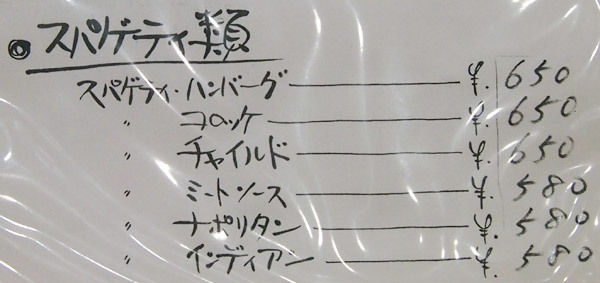 ◎スパゲティ類
スパゲティ・ハンバーグ ¥.650
〃 コロッケ ¥.650
〃 チャイルド ¥.650
〃 ミートソース ¥.580
〃 ナポリタン ¥.580
〃 インディアン ¥.580